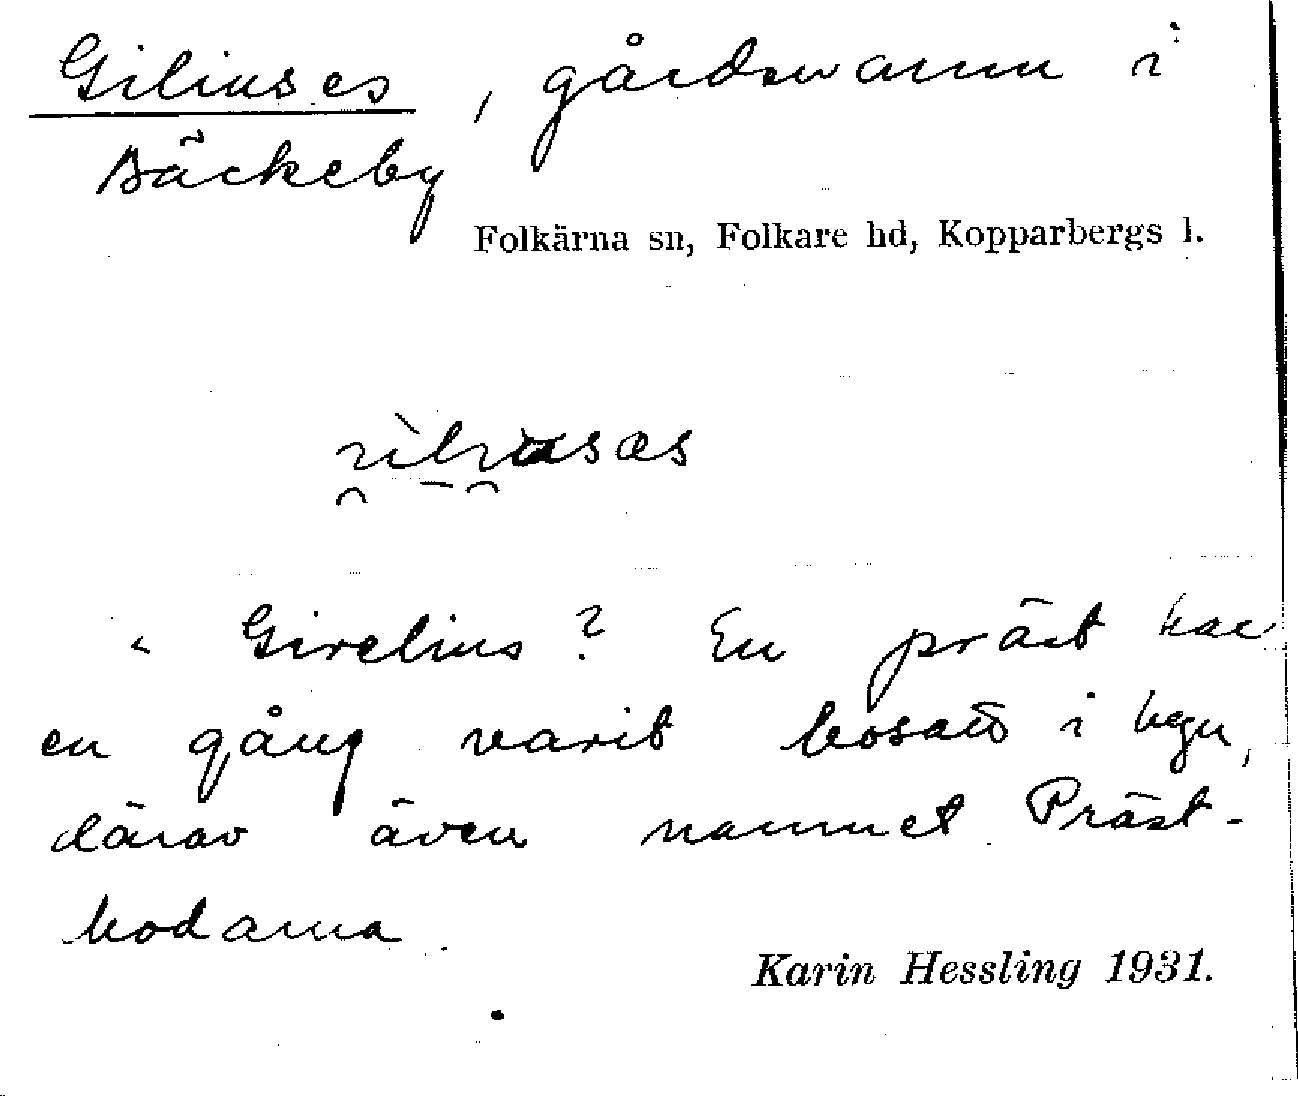 Giliuses, gårdsnamn i
Bäckeby
Folkärna sn, Folkare hd, Kopparbergs l.
< Girelius? En präst har
en gång varit bosatt i byn,
därav även namnet Präst-
bodarna.
Karin Hessling 1931.